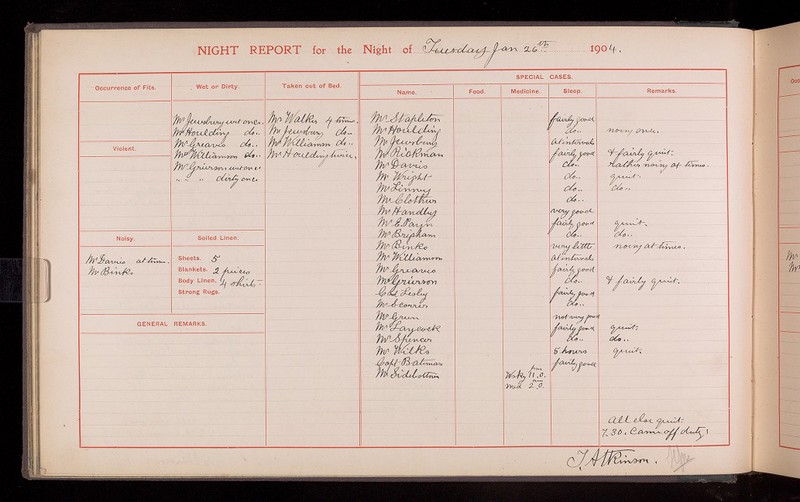 NIGHT REPORT for the Night of Tuesday Jan 26th 1904.
Occurrence of Fits.
Wet or Dirty.
Taken out of Bed.
SPECIAL CASES.
Name.
Food.
Medicine.
Sleep.
Remarks.
Mr Jewsbury wet once.
Mr Houlding do..
Mr Greaves do..
Mr Williamson do..
Mr Grierson wet once
" " " dirty once
Mr Walker 4 times.
Mr Jewsbury do..
Mr Williamson do..
Mr Houlding twice.
Violent.
Noisy.
Mr Davies at times.
Mr Binks
Soiled Linen.
Sheets. 5
Blankets. 2 pieces
Body Linen. 4 shirts
Strong Rugs.
GENERAL REMARKS.
Mr Stapleton fairly good
Mr Houlding do.. noisy once.
Mr Jewsbury at intervals
Mr Rickman fairly good & fairly quiet.
Mr Davies do.. rather noisy at times.
Mr Wright do.. quiet.
Mr do.. do..
Mr do..
Mr Handley very good
Mr fairly good quiet.
Mr Brigham do.. do..
Mr Binks very little noisy at times.
Mr Williamson at intervals
Mr Greaves fairly good
Mr Grierson do.. & fairly quiet.
Lesley fairly good
Mr do..
Mr Green not very good
Mr Laycock fairly good quiet.
Mr Spencer do.. do..
Mr Wilks 5 hours quiet.
Capt Bateman fairly good
Mr Sidebottom
All else quiet.
7.30. Came off duty.
T. Atkinson.